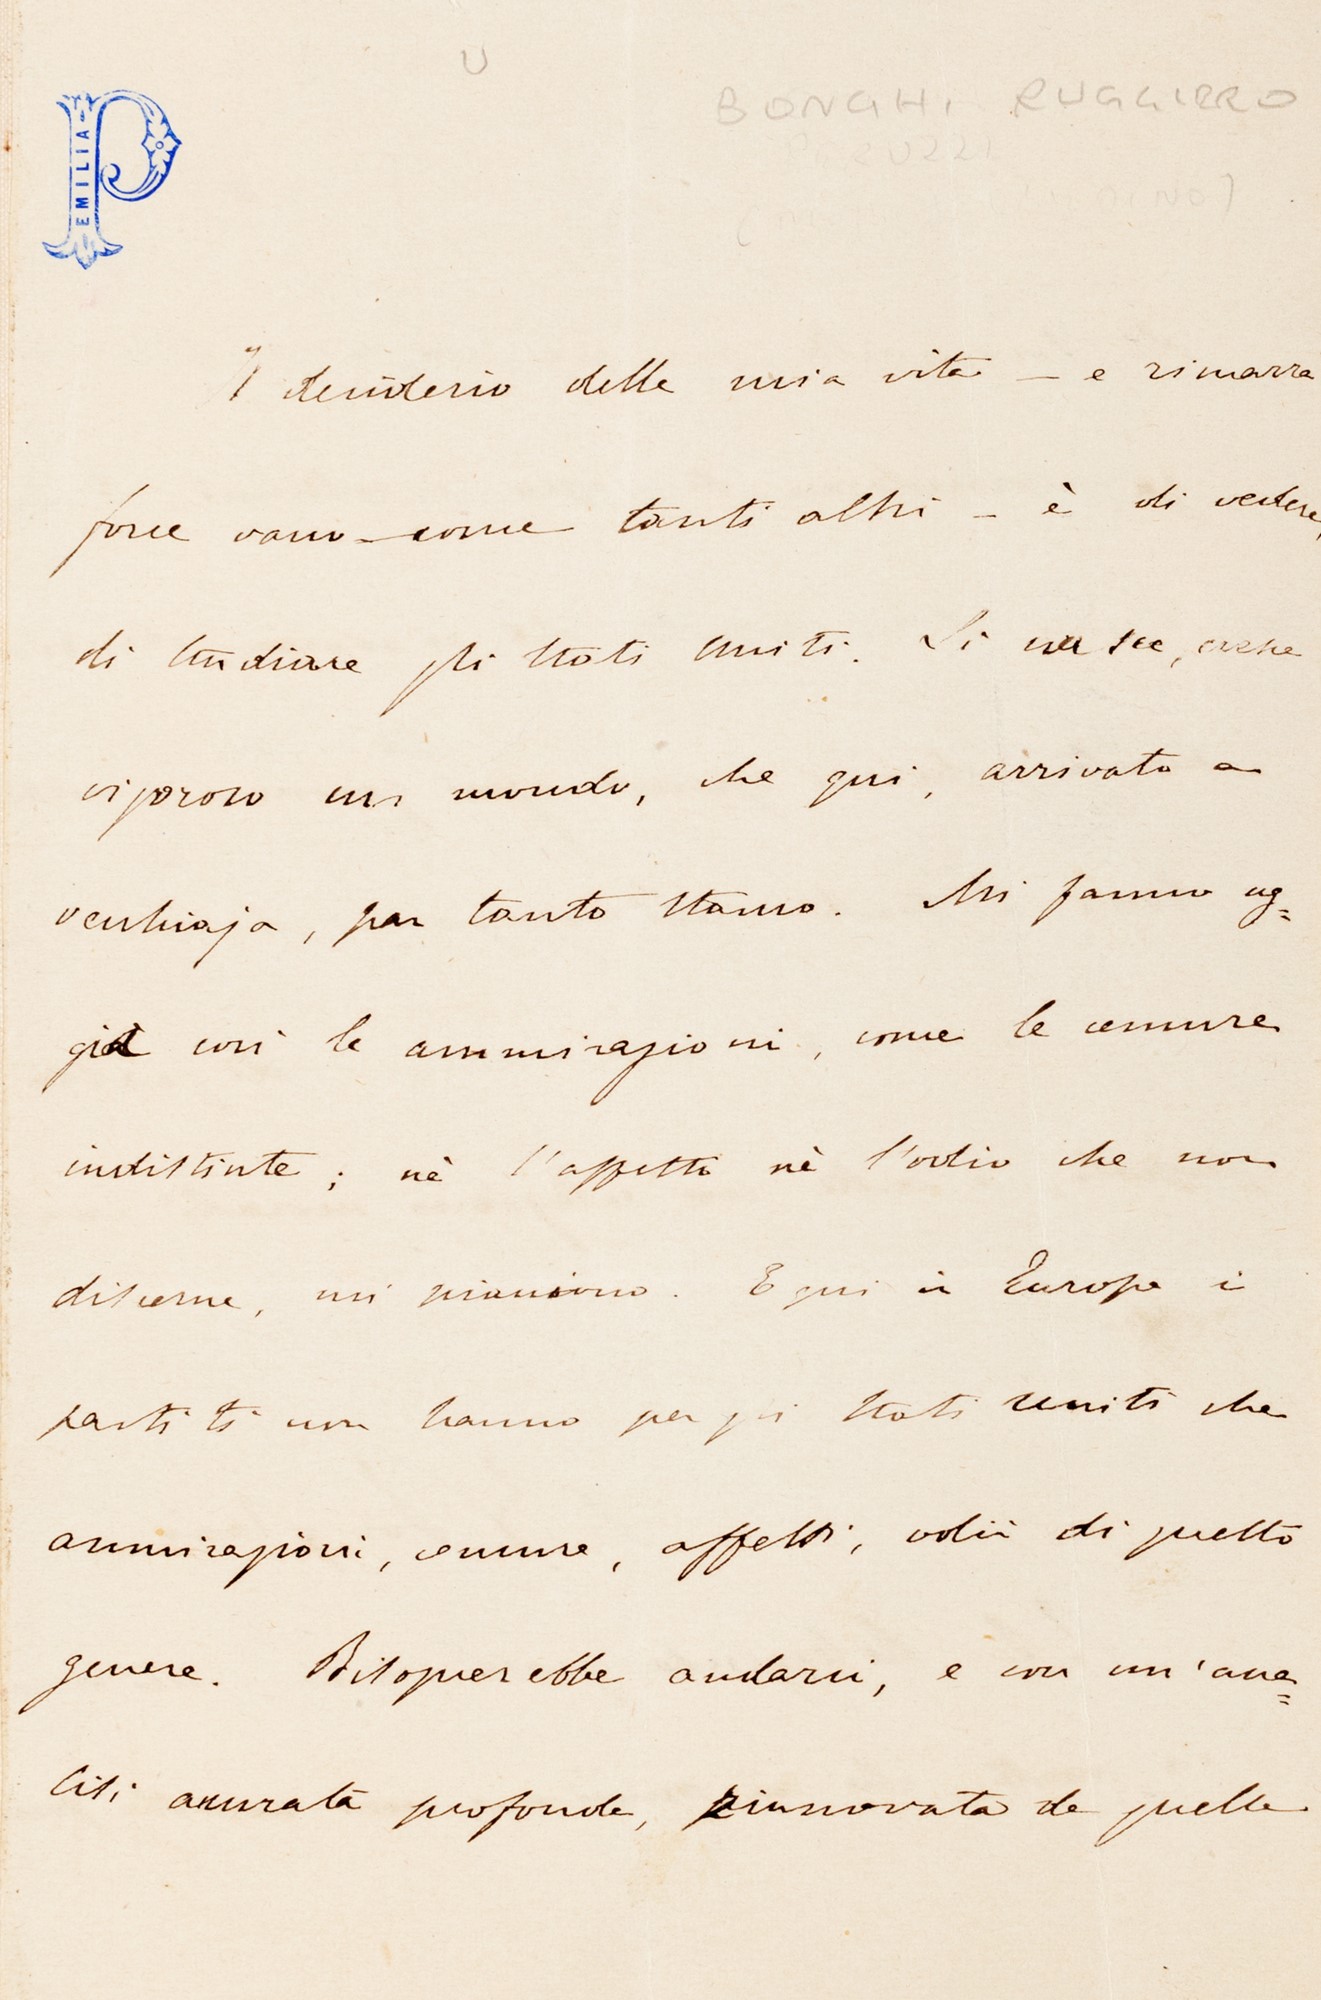 U
BONGHI RUGGIERO
EMILIA P
Il desiderio della mia vita – e rimarrà
forse vano – come tanti altri – è di vedere,
di studiare gli Stati Uniti. Lì nasce, cresce
vigoroso un mondo, che qui, arrivato a
vecchiaja, par tanto stanco. Mi fanno ug=
gia così le ammirazioni, come le censure
indistinte; nè l'affetto nè l'odio che non
discerne, mi piacciono. E qui in Europa i
partiti non hanno per gli Stati Uniti che
ammirazioni, censure, affetti, odii di questo
genere. Bisognerebbe andarci, e con un'ana=
lisi accurata profonda, rinnovata da quelle